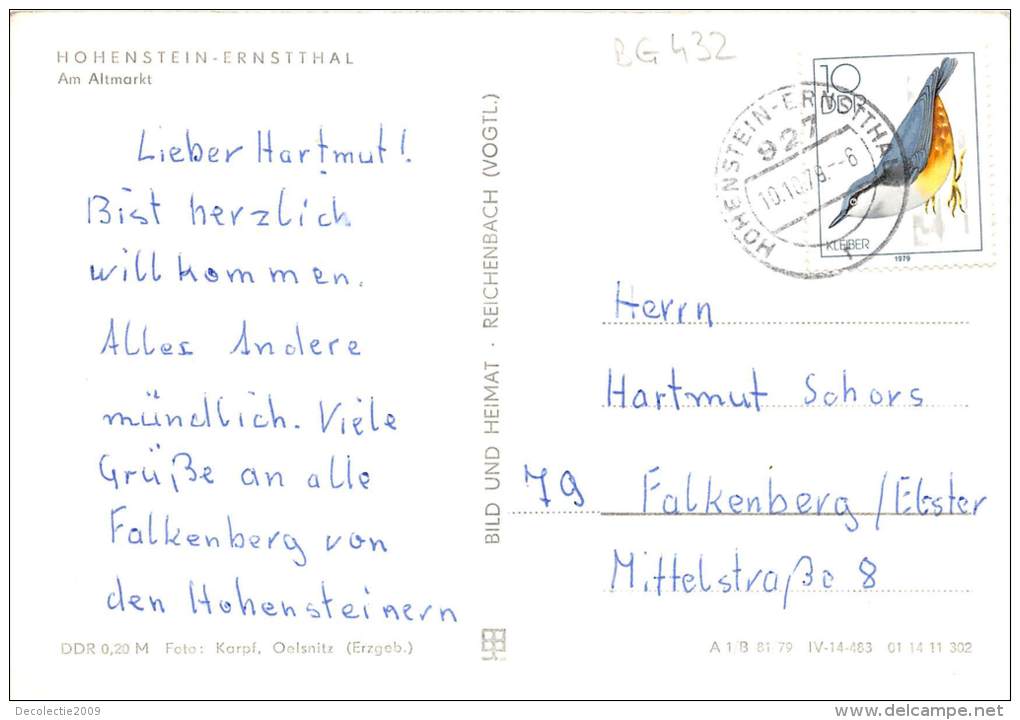 HOHENSTEIN-ERNSTTHAL
Am Altmarkt
BG 432
10
DDR
KLEIBER
1979
HOHENSTEIN-ERNSTTHAL 1
927
10.10.79.--6
Lieber Hartmut!
Bist herzlich
willkommen.
Alles Andere
mündlich. Viele
Grüße an alle
Falkenberg von
den Hohensteinern
BILD UND HEIMAT · REICHENBACH (VOGTL.)
Herrn
Hartmut Schors
79 Falkenberg/Elster
Mittelstraße 8
DDR 0,20 M Foto: Karpf, Oelsnitz (Erzgeb.)
A 1 B 81 79 IV-14-483 01 14 11 302
Decolectie2009
www.delcampe.net